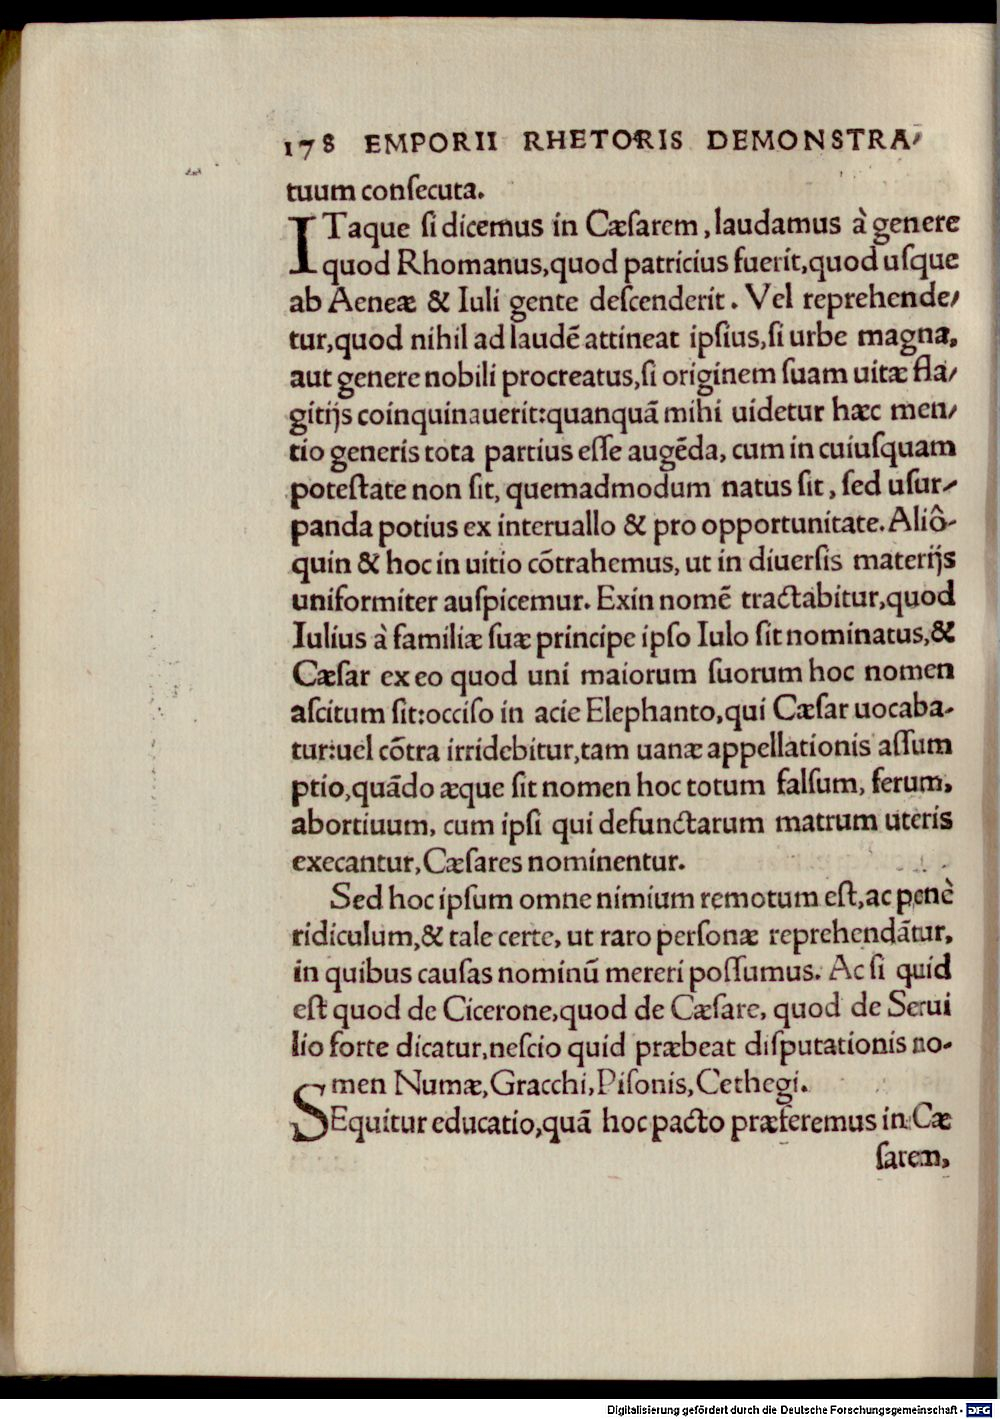 178 EMPORII RHETORIS DEMONSTRA-
tuum consecuta.
ITaque si dicemus in Cæsarem, laudamus à genere
quod Rhomanus, quod patricius fuerit, quod usque
ab Aeneæ & Iuli gente descenderit. Vel reprehende-
tur, quod nihil ad laudẽ attineat ipsius, si urbe magna,
aut genere nobili procreatus, si originem suam uitæ fla-
gitijs coinquinauerit: quanquã mihi uidetur hæc men-
tio generis tota partius esse augẽda, cum in cuiusquam
potestate non sit, quemadmodum natus sit, sed usur-
panda potius ex interuallo & pro opportunitate. Aliô-
quin & hoc in uitio cõtrahemus, ut in diuersis materijs
uniformiter auspicemur. Exin nomẽ tractabitur, quod
Iulius à familiæ suæ principe ipso Iulo sit nominatus, &
Cæsar ex eo quod uni maiorum suorum hoc nomen
ascitum sit: occiso in acie Elephanto, qui Cæsar uocaba-
tur: uel cõtra irridebitur, tam uanæ appellationis assum
ptio, quãdo æque sit nomen hoc totum falsum, ferum,
abortiuum, cum ipsi qui defunctarum matrum uteris
execantur, Cæsares nominentur.
Sed hoc ipsum omne nimium remotum est, ac penè
ridiculum, & tale certe, ut raro personæ reprehendãtur,
in quibus causas nominũ mereri possumus. Ac si quid
est quod de Cicerone, quod de Cæsare, quod de Serui
lio forte dicatur, nescio quid præbeat disputationis no-
men Numæ, Gracchi, Pisonis, Cethegi.
SEquitur educatio, quã hoc pacto præferemus in Cæ
sarem,
Digitalisierung gefördert durch die Deutsche Forschungsgemeinschaft - DFG